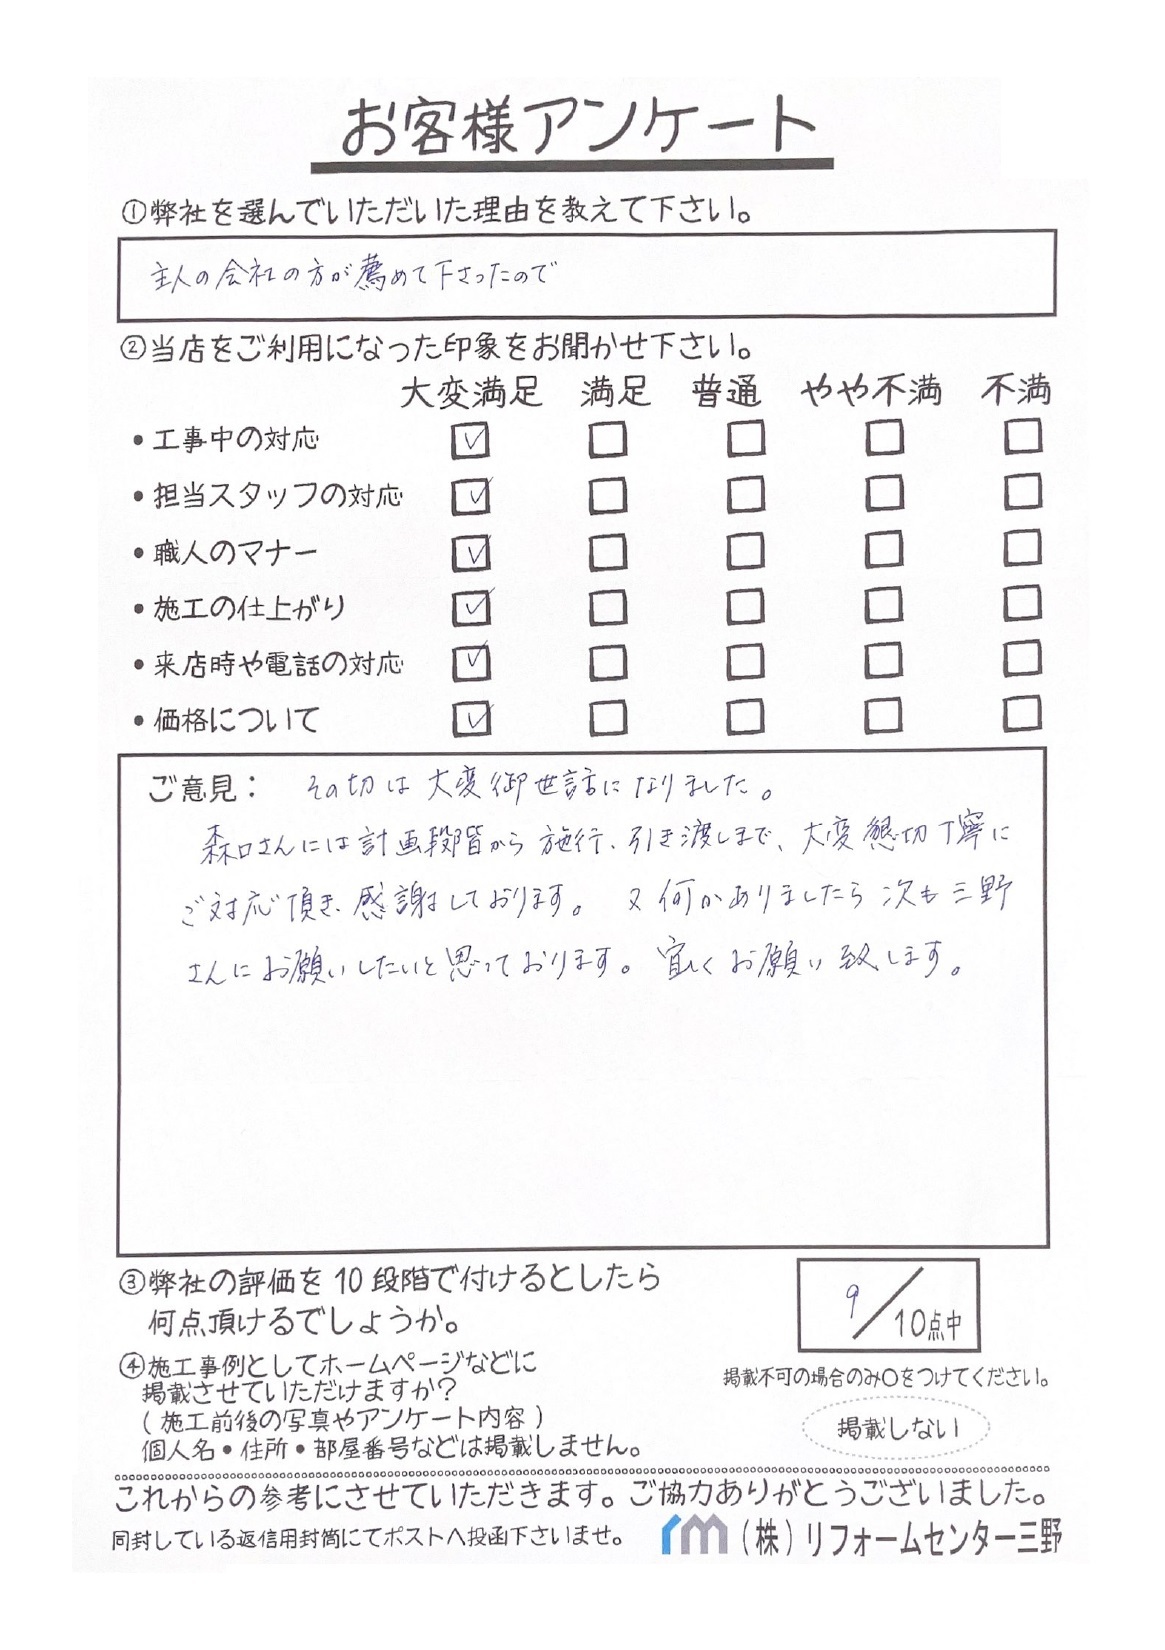 お客様アンケート
①弊社を選んでいただいた理由を教えて下さい。
主人の会社の方が薦めて下さったので
②当店をご利用になった印象をお聞かせ下さい。
大変満足 満足 普通 やや不満 不満
・工事中の対応 ☑ □ □ □ □
・担当スタッフの対応 ☑ □ □ □ □
・職人のマナー ☑ □ □ □ □
・施工の仕上がり ☑ □ □ □ □
・来店時や電話の対応 ☑ □ □ □ □
・価格について ☑ □ □ □ □
ご意見： その切は大変御世話になりました。
森口さんには計画段階から施行、引き渡しまで、大変懇切丁寧に
ご対応頂き、感謝しております。 又何かありましたら次も三野
さんにお願いしたいと思っております。宜しくお願い致します。
③弊社の評価を10段階で付けるとしたら
何点頂けるでしょうか。
9/10点中
④施工事例としてホームページなどに
掲載させていただけますか?
(施工前後の写真やアンケート内容)
個人名・住所・部屋番号などは掲載しません。
掲載不可の場合のみ○をつけてください。
掲載しない
これからの参考にさせていただきます。ご協力ありがとうございました。
同封している返信用封筒にてポストへ投函下さいませ。
rm (株)リフォームセンター三野